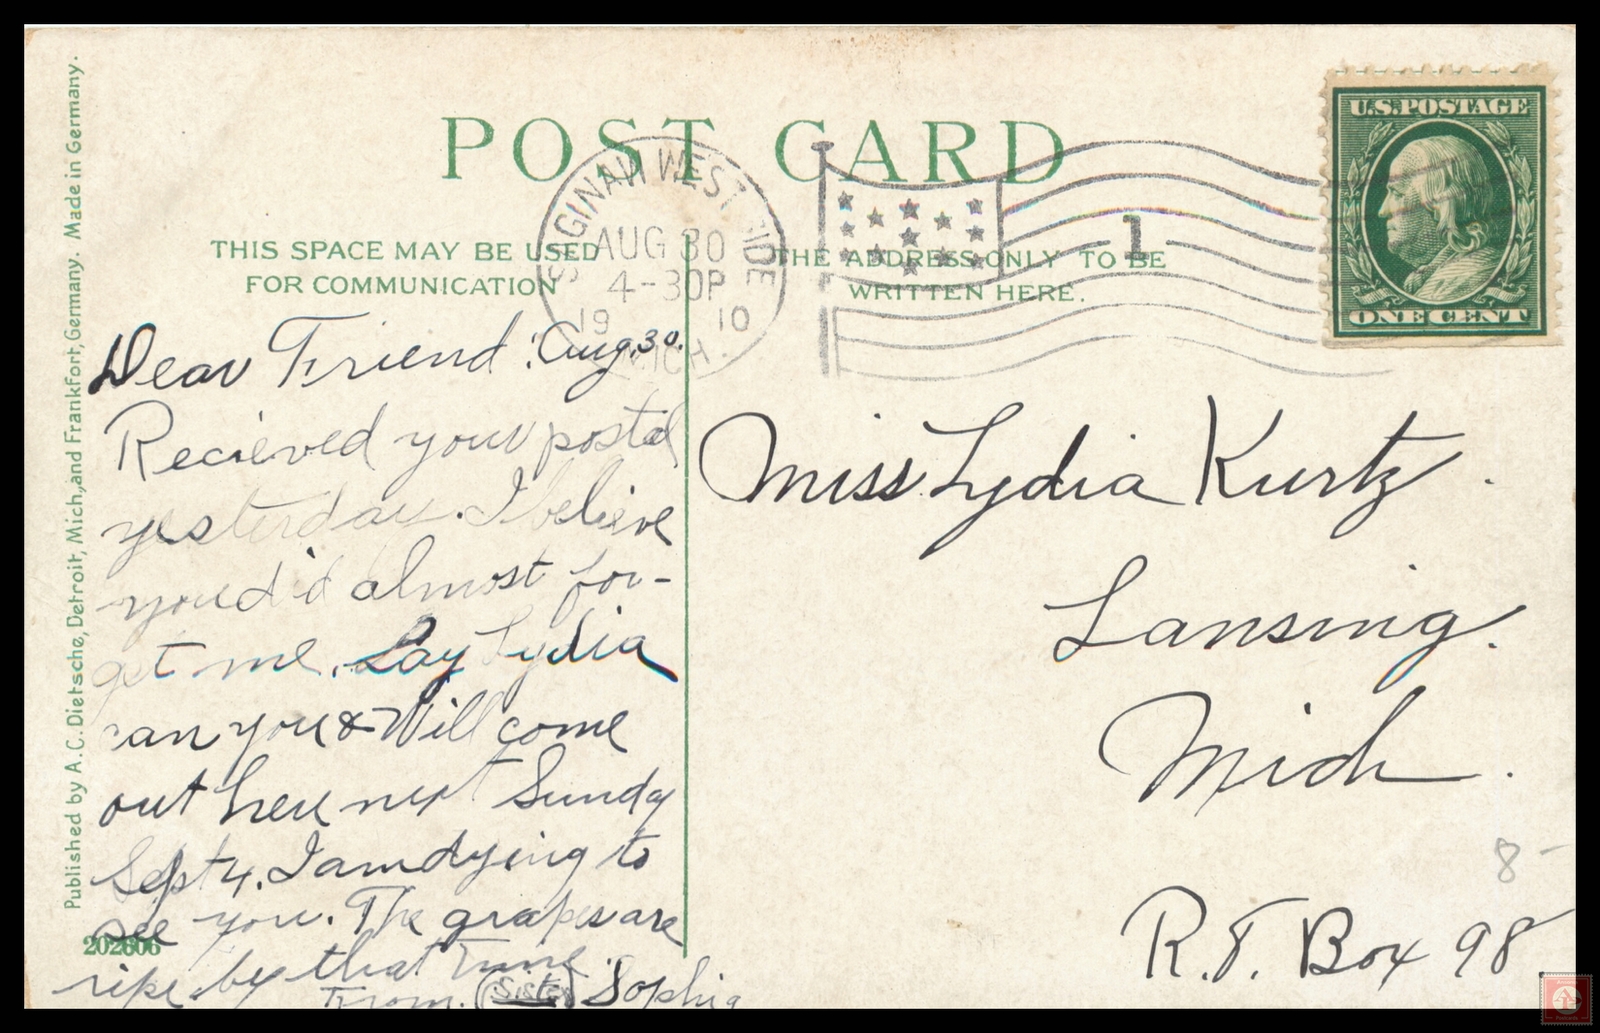 POST CARD
THIS SPACE MAY BE USED
FOR COMMUNICATION
THE ADDRESS ONLY TO BE
WRITTEN HERE.
SAGINAW WEST SIDE
AUG 30
4-30P
19 10
MICH.
1
U.S. POSTAGE
ONE CENT
Published by A.C. Dietsche, Detroit, Mich., and Frankfort, Germany. Made in Germany.
Dear Friend: Aug. 30.
Recieved your postal
yesterday. I believe
you'd almost for-
get me. Say Lydia
can you & Will come
out here next Sunday
Sept 4. I am dying to
see you. The grapes are
ripe by that time.
From. (Sister) Sophia
202606
Miss Lydia Kurtz.
Lansing.
Mich.
8-
R.F. Box 98